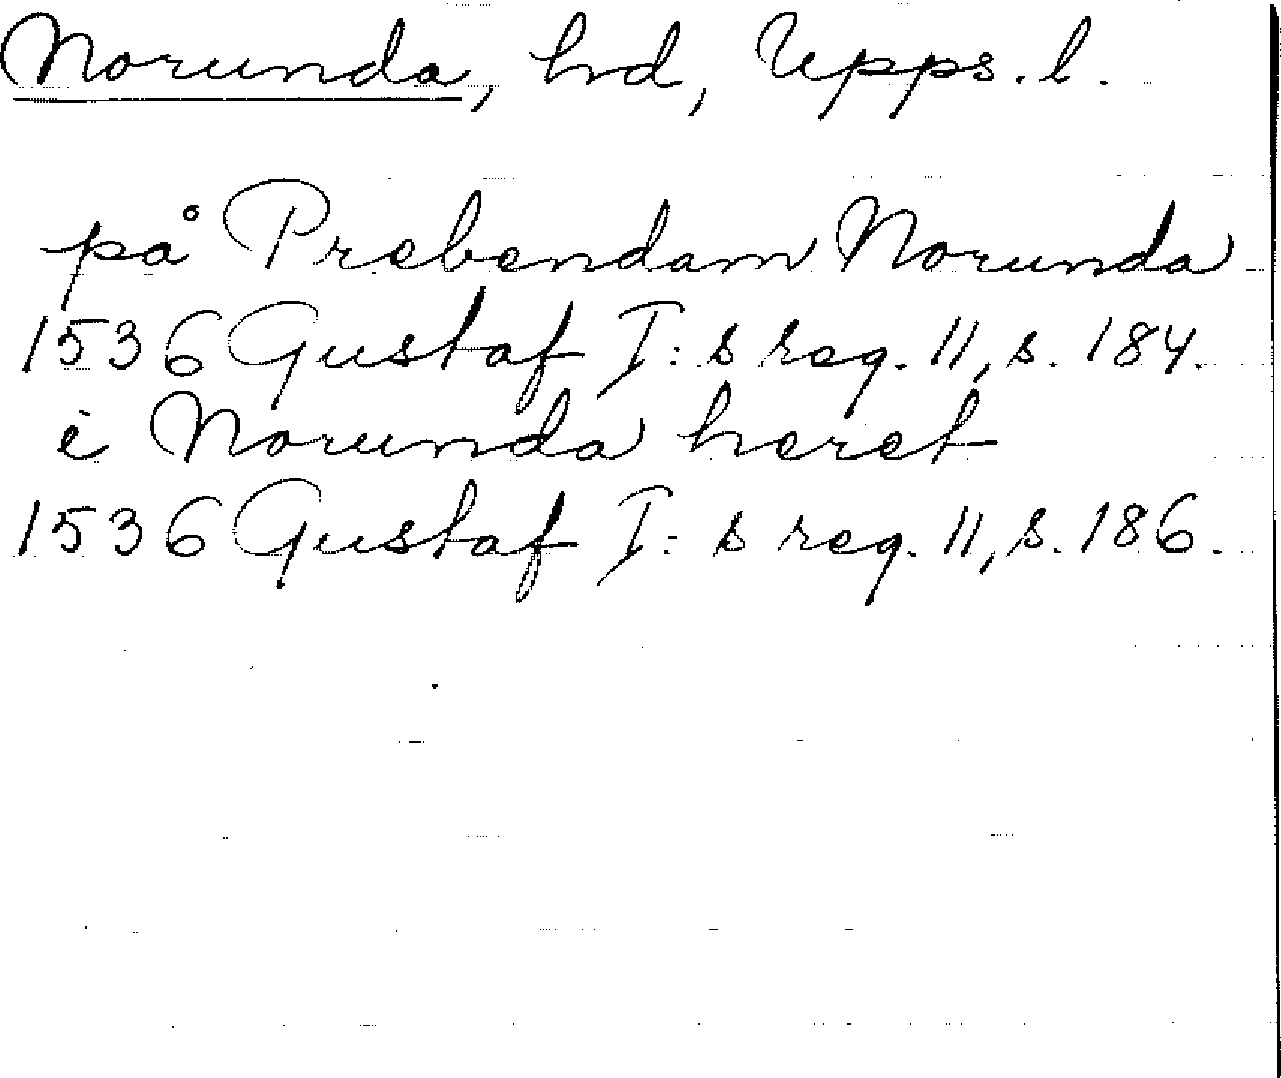 Norunda, hd, Upps. l.
på Prebendam Norunda
1536 Gustaf I: s reg. 11, s. 184.
i Norunda heret
1536 Gustaf I: s reg. 11, s. 186.